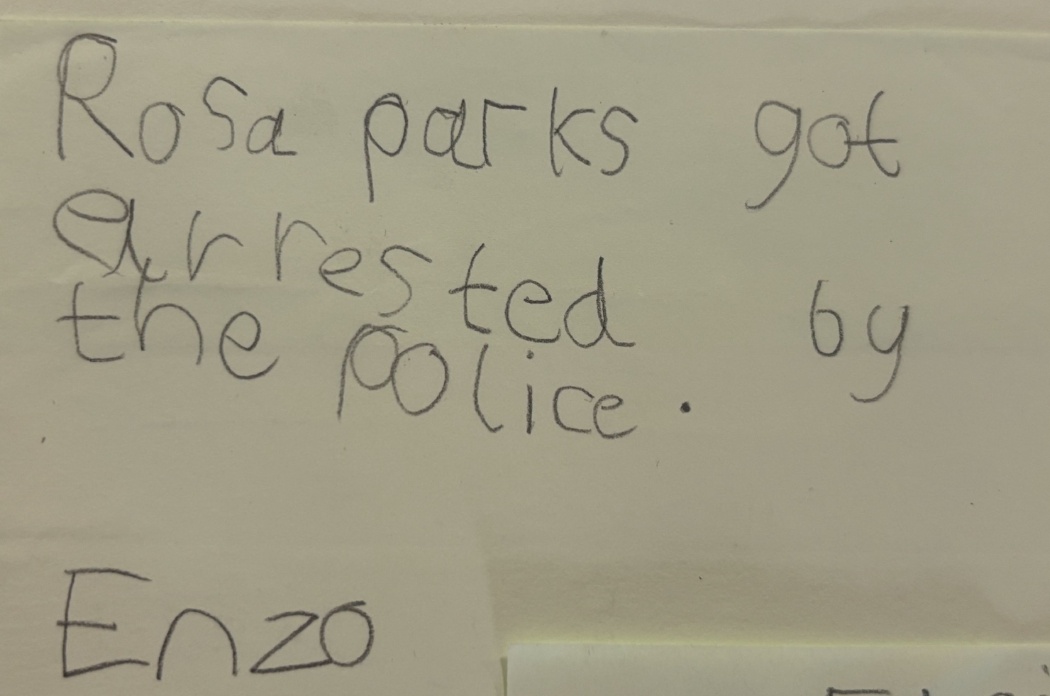 Rosa parks got
arrested by
the police.
Enzo